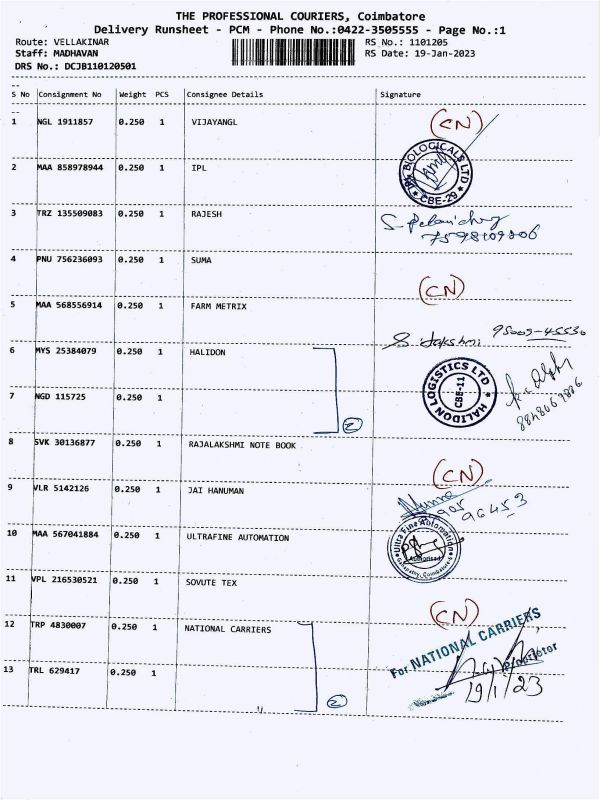 THE PROFESSIONAL COURIERS, Coimbatore
Delivery Runsheet - PCM - Phone No.:0422-3505555 - Page No.:1
Route: VELLAKINAR RS No.: 1101205
Staff: MADHAVAN RS Date: 19-Jan-2023
DRS No.: DCJB110120501
S No Consignment No Weight PCS Consignee Details Signature
1 NGL 1911857 0.250 1 VIJAYANGL (CN)
2 MAA 858978944 0.250 1 IPL
BIOLOGICALS LTD
CBE-29
3 TRZ 135509083 0.250 1 RAJESH
4 PNU 756236093 0.250 1 SUMA (CN)
5 MAA 568556914 0.250 1 FARM METRIX
95009-45530
6 MYS 25384079 0.250 1 HALIDON
HALIDON LOGISTICS LTD
CBE-11
7 NGD 115725 0.250 1
2
8 SVK 30136877 0.250 1 RAJALAKSHMI NOTE BOOK (CN)
9 VLR 5142126 0.250 1 JAI HANUMAN
96453
10 MAA 567041884 0.250 1 ULTRAFINE AUTOMATION
Ultra Fine Automation
11 VPL 216530521 0.250 1 SOVUTE TEX (CN)
12 TRP 4830007 0.250 1 NATIONAL CARRIERS
For NATIONAL CARRIERS
Proprietor
13 TRL 629417 0.250 1
19/1/23
2